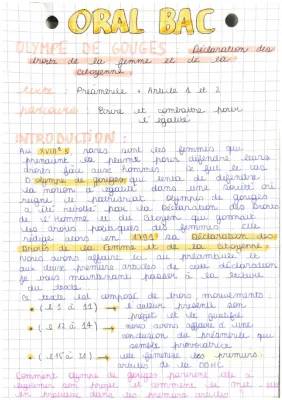 ORAL BAC
OLYMPE DE GOUGES Déclaration des
droits de la femme et de la
citoyenne
texte : Préambule + Article 1 et 2
parcours : Ecrire et combattre pour
l'égalité
INTRODUCTION :
Au XVIIIe s rares sont les femmes qui
prennent la plume pour défendre leurs
droits face aux hommes. Ce fut le cas
D'olympe de gouges qui tenta de défendre
la notion d'égalité dans une société où
règne le patriarcat. Olympe de Gouges
a été révoltée par la Déclaration des Droits
de l'Homme et du Citoyen qui
les droits politiques des femmes. elle
rédige alors en 1791 sa Déclaration des
Droits de la Femme et de la Citoyenne.
Nous avons affaire ici au préambule et
aux deux premiers articles de cette déclaration
je vais maintenant passer à la lecture
du texte.
Ce texte est composé de trois mouvements
(l 1 à 11) → l'auteur présente son
projet et le justifie
(l 12 à 14) → nous avons affaire à une
conclusion du préambule qui
semble provocatrice
(l 15 à ) → elle féminise les premiers
articles de la DDHC
Comment olympe de gouges parvient elle à
légitimer son projet et comment le met elle
en pratique dans les premiers articles ?